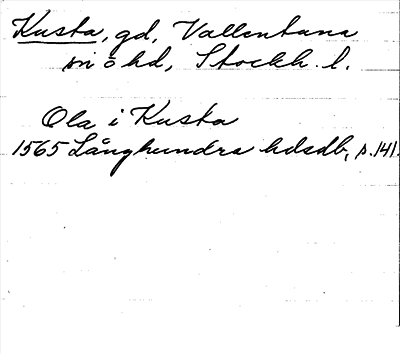 Kusta, gd, Vallentuna
sn o hd, Stockh. l.
Ola i Kusta
1565 Långhundra hdsdb, s. 141.